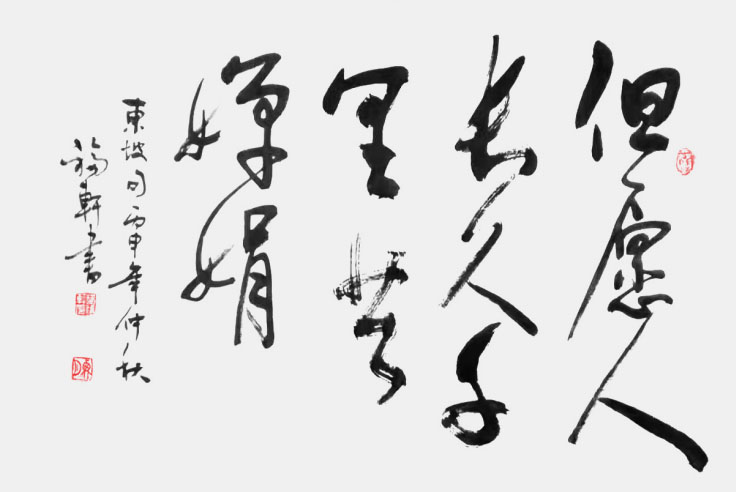 但愿人
长久千
里共
婵娟
東坡句丙申年仲秋
福軒書